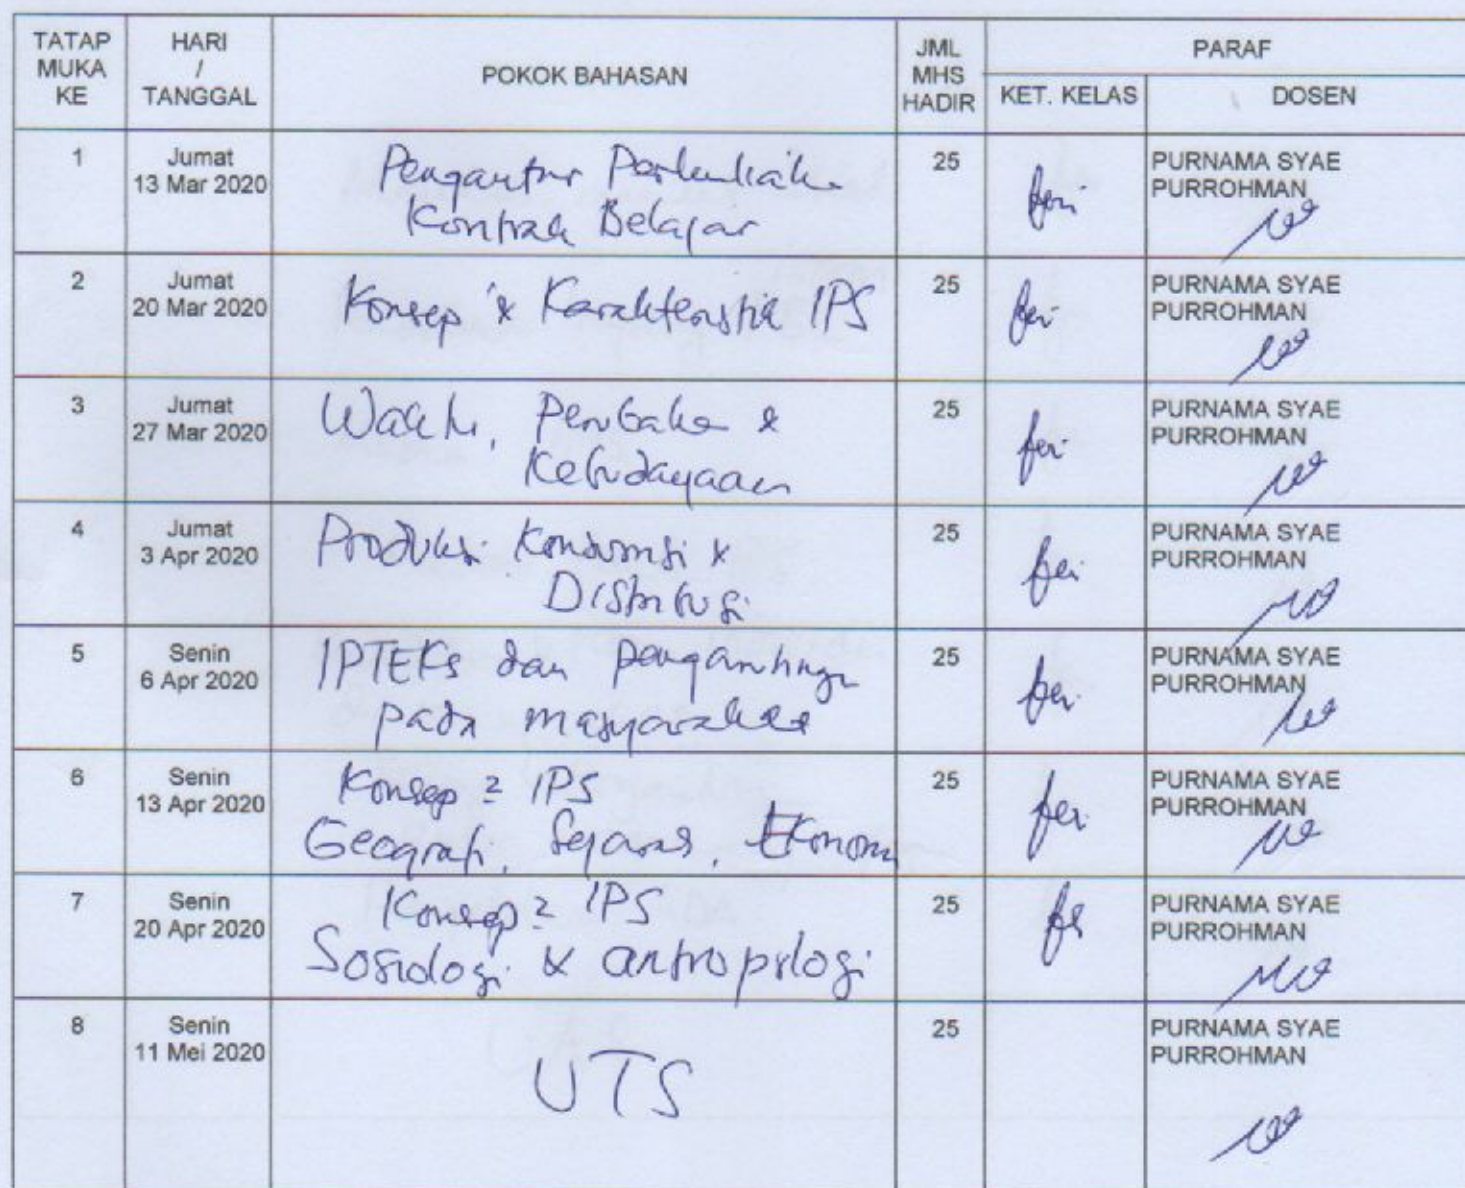 TATAP MUKA KE
HARI / TANGGAL
POKOK BAHASAN
JML MHS HADIR
PARAF
KET. KELAS
DOSEN
1
Jumat
13 Mar 2020
Pengantar Perkuliahan
Kontrak Belajar
25
PURNAMA SYAE
PURROHMAN
2
Jumat
20 Mar 2020
Konsep & Karakteristik IPS
25
PURNAMA SYAE
PURROHMAN
3
Jumat
27 Mar 2020
Waktu, Perubahan &
Kebudayaan
25
PURNAMA SYAE
PURROHMAN
4
Jumat
3 Apr 2020
Produksi Konsumsi &
Distribusi
25
PURNAMA SYAE
PURROHMAN
5
Senin
6 Apr 2020
IPTEKs dan pengaruhnya
pada masyarakat
25
PURNAMA SYAE
PURROHMAN
6
Senin
13 Apr 2020
Konsep2 IPS
Geografi, Sejarah, Ekonomi
25
PURNAMA SYAE
PURROHMAN
7
Senin
20 Apr 2020
Konsep2 IPS
Sosiologi & antropologi
25
PURNAMA SYAE
PURROHMAN
8
Senin
11 Mei 2020
UTS
25
PURNAMA SYAE
PURROHMAN